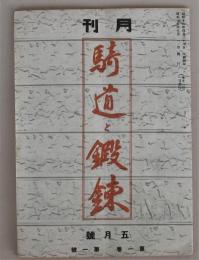 月刊
騎道と鍛錬
五月號
第一卷 第一號